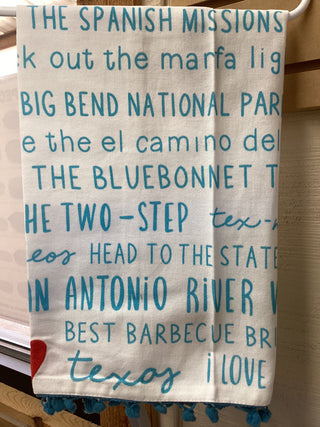 THE SPANISH MISSIONS
k out the marfa lig
BIG BEND NATIONAL PAR
e the el camino del
THE BLUEBONNET T
HE TWO-STEP tex-
eos HEAD TO THE STATE
N ANTONIO RIVER
BEST BARBECUE BR
texas i LOVE